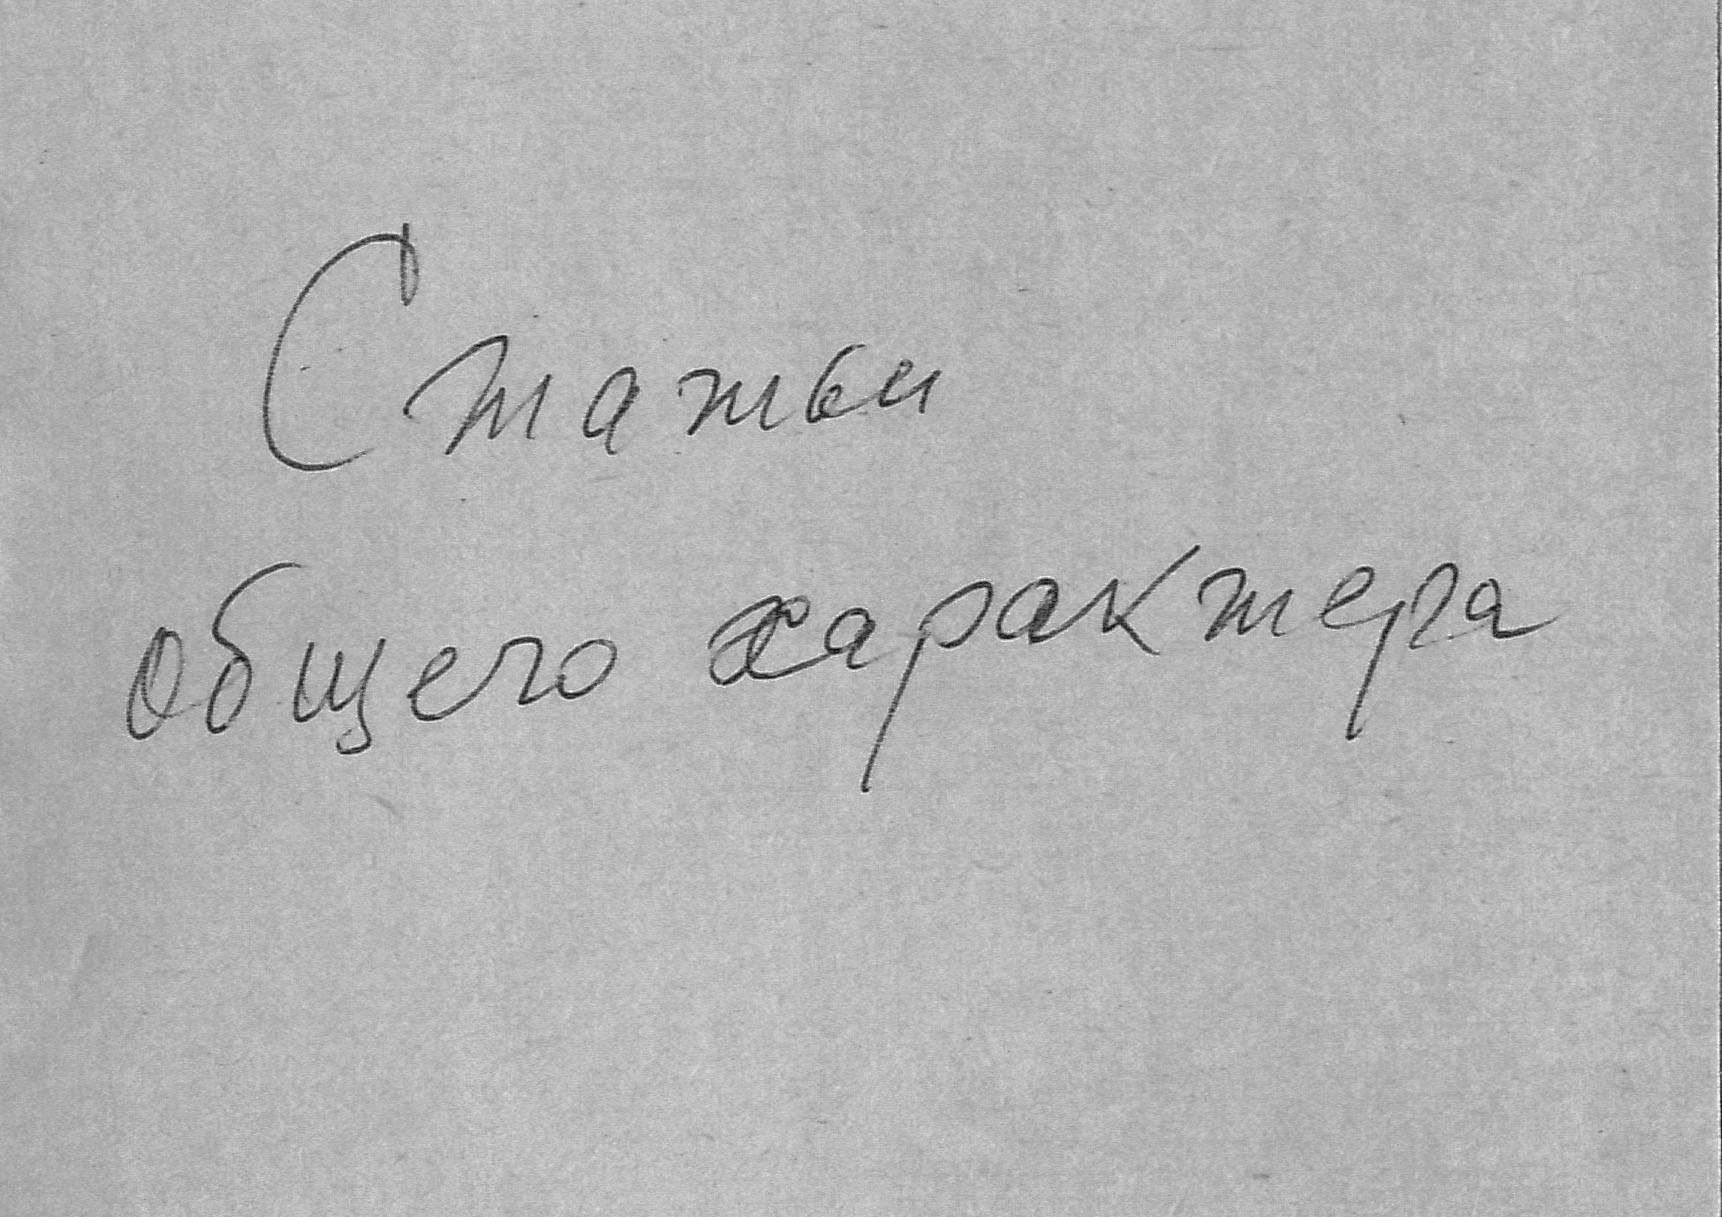 Статьи
общего характера